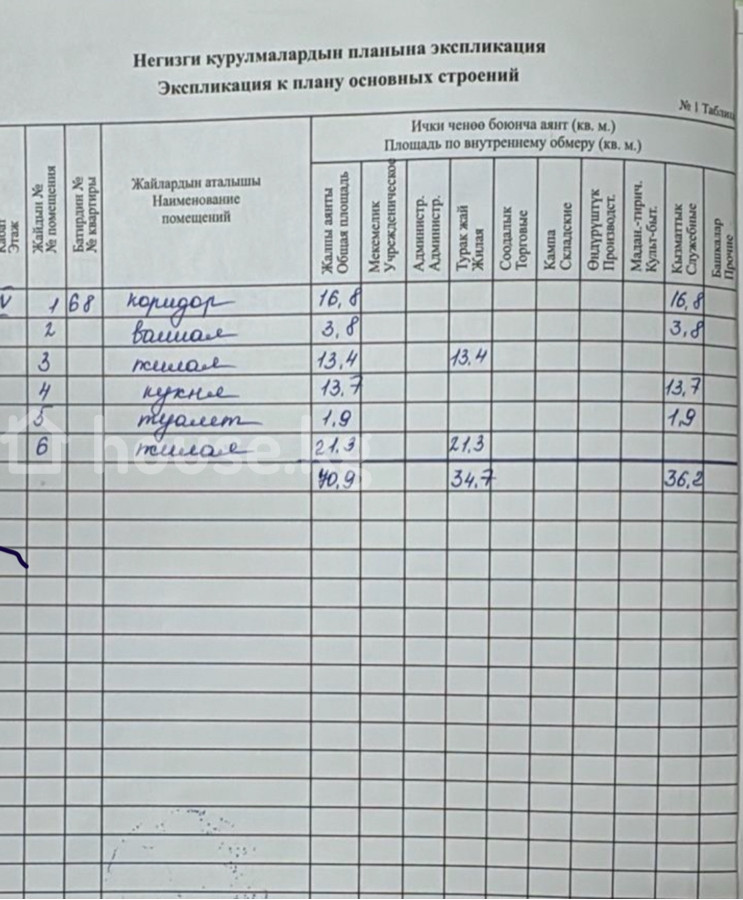 Негизги курулмалардын планына экспликация
Экспликация к плану основных строений
№ 1 Таблиц
Ички ченөө боюнча аянт (кв. м.)
Площадь по внутреннему обмеру (кв. м.)
Кабат
Этаж
Жайдын №
№ помещения
Батирдин №
№ квартиры
Жайлардын аталышы
Наименование
помещений
Жалпы аянты
Общая площадь
Мекемелик
Учрежденическое
Администр.
Администр.
Турак жай
Жилая
Соодалык
Торговые
Кампа
Складские
Өндүрүштүк
Производст.
Мадан.-тирич.
Культ-быт.
Кызматтык
Служебные
Башкалар
Прочие
V 1 68 коридор 16,8 16,8
2 ванная 3,8 3,8
3 жилая 13,4 13,4
4 кухня 13,7 13,7
5 туалет 1,9 1,9
6 жилая 21,3 21,3
70,9 34,7 36,2
house.kg